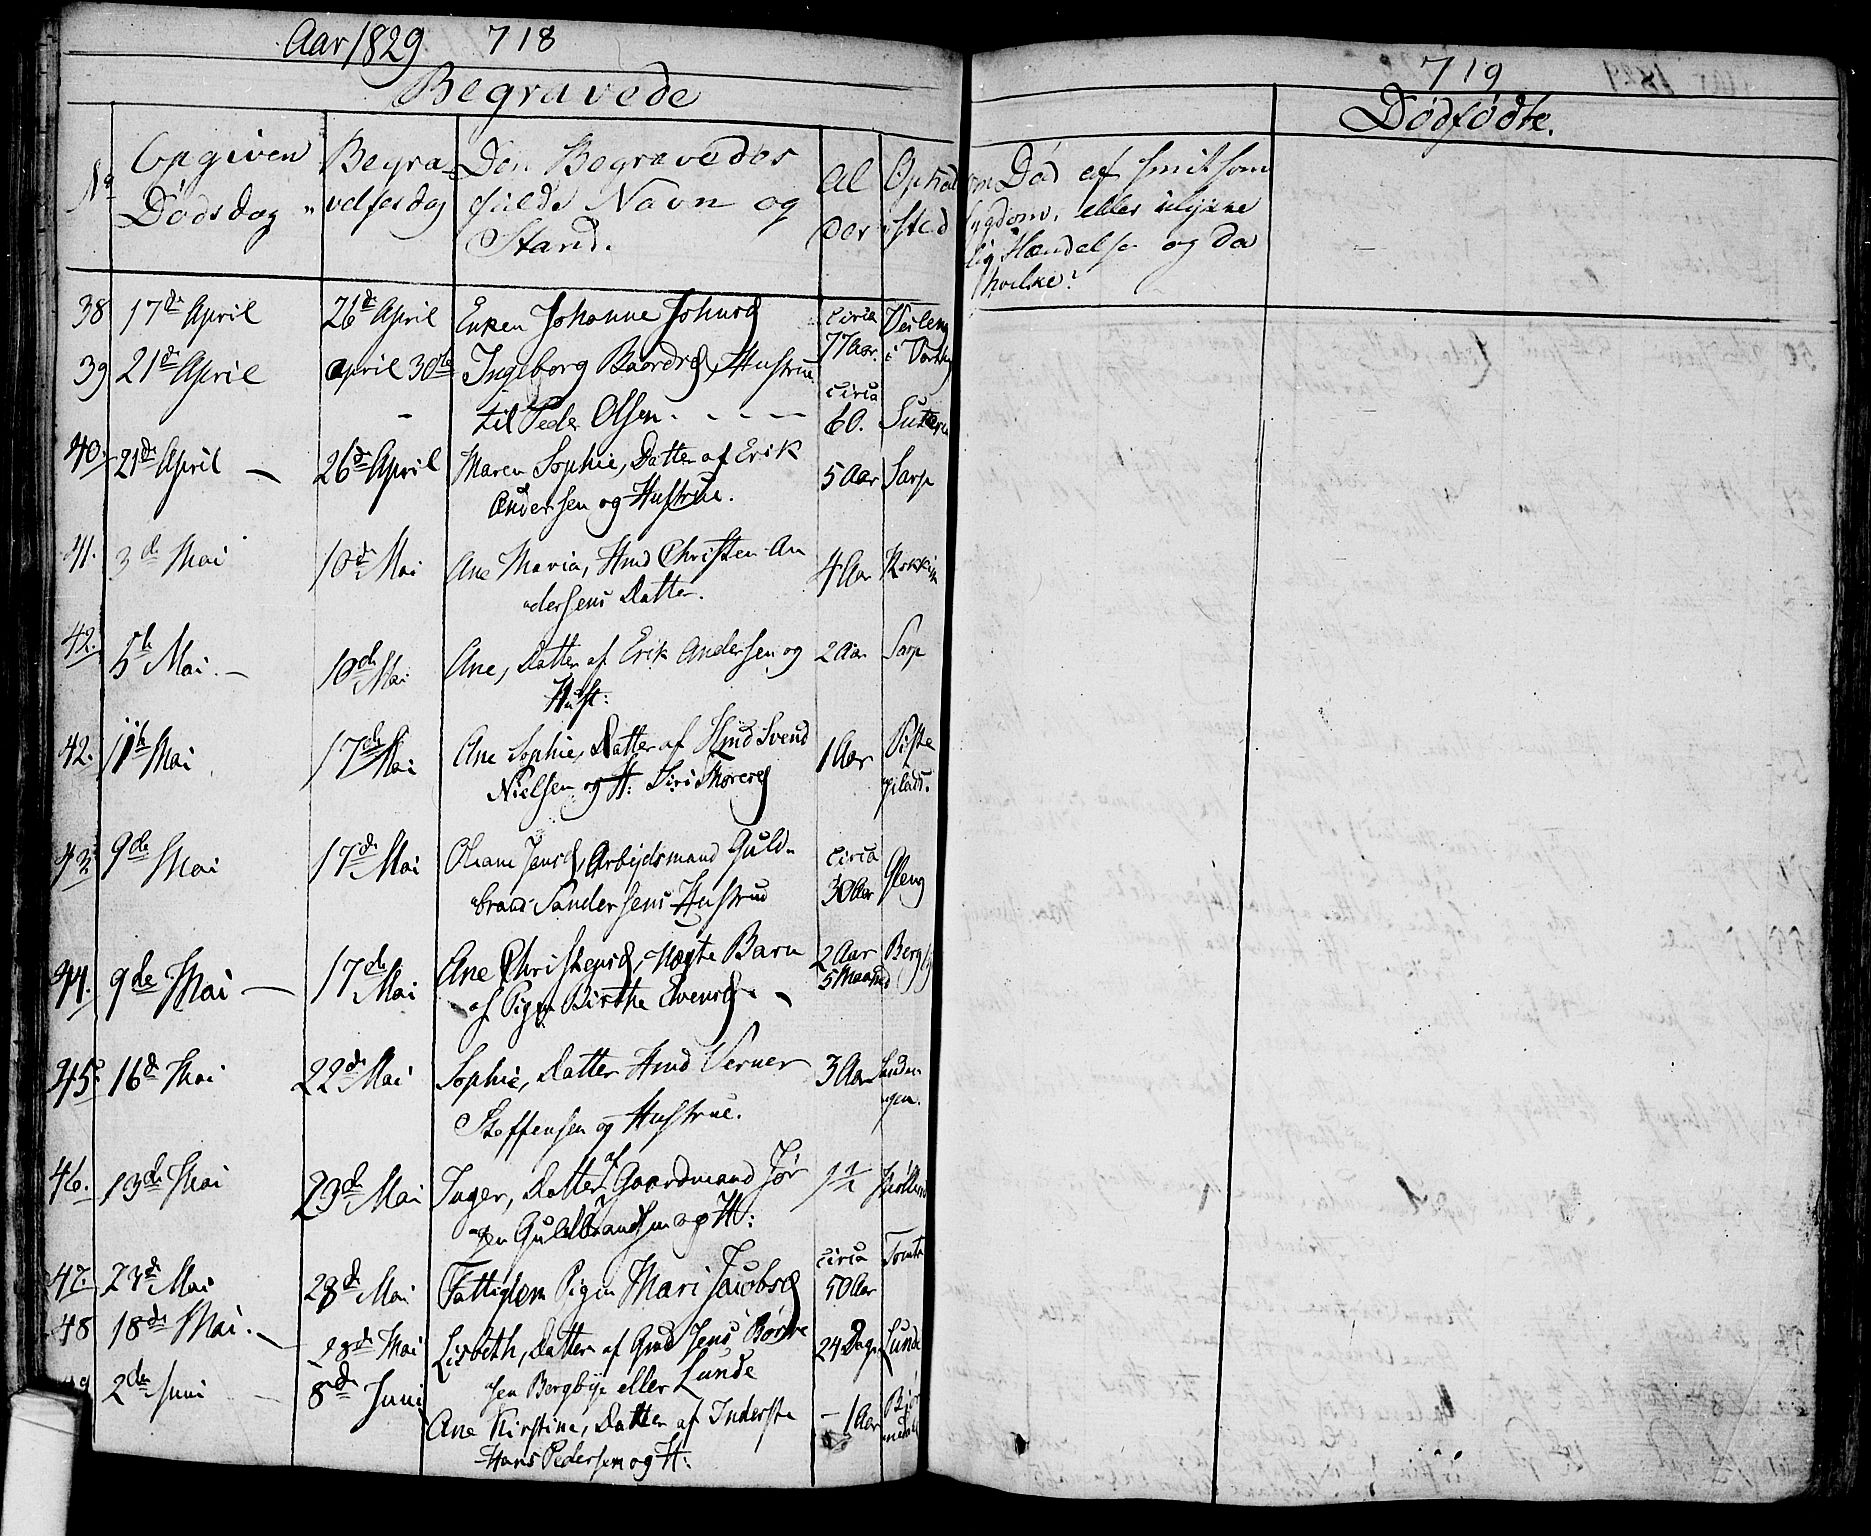 Aar 1829 718
Begravede
No Opgiven Dødsdag Begravelsesdag Den Begravedes fulde Navn og Stand. Alder Opholdsted
38 17de April 26de April Enken Johanne Johnsd circa 77 Aar.
39 21de April april 30te Ingeborg Baordsd, Hustrue circa
til Peder Olsen. - - - - 60.
40. 21de April — 26de April Maren Sophie, Datter af Erik 5 Aar Sarp
Andersen og Hustrue.
41. 3de Mai 10de Mai Ane Maria, Hmd Christen An 4 Aar
dersens Datter.
42. 5te Mai. — 10de Mai Ane, Datter af Erik Andersen og 2 Aar Sarp
Hust:
42. 11te Mai 17de Mai Ane Sophie, Datter af Hmd Svend 1 Aar
Nielsen og H: Siri plads.
43. 9de Mai 17de Mai Jensd, Arbejdsmand Guld- circa 30 Aar Gleng
brand Sandersens Hustrud
44. 9de Mai — 17de Mai Ane Christensd, Uægte Barn 2 Aar 5 Maaned
af Pigen Birthe Svensd. —
45. 16de Mai 22de Mai Sophie, Datter Hmd Verner 3 Aar
Steffensen og Hustrue.
46. 13de Mai 23de Mai Inger, Datter af Gaardmand Jør 1 1/2
gen Guldbrandsen og H:
47. 23de Mai 28de Mai Fattiglem Pigen Mari Jacobsd circa 50 Aar
48 18de Mai. — 28de Mai Lisbeth, Datter af Gmd Jens Børre 24 Dage Lunde
sen Bergbye eller Lunde
49 2de Juni 8de Juni Ane Kirstine, Datter af Inderste — 1 Aar
Hans Pedersen og H:
719
Dødfødte.
om Død af smitsom
sygdom, eller ulykke
lig Hændelse og da
hvilke?